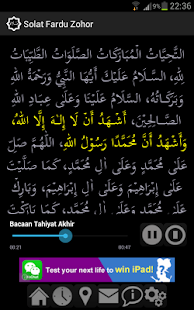 22:36
Solat Fardu Zohor
التَّحِيَّاتُ الْمُبَارَكَاتُ الصَّلَوَاتُ الطَّيِّبَاتُ
لِلَّهِ، السَّلَامُ عَلَيْكَ أَيُّهَا النَّبِيُّ وَرَحْمَةُ اللَّهِ
وَبَرَكَاتُهُ، السَّلَامُ عَلَيْنَا وَعَلَى عِبَادِ اللَّهِ
الصَّالِحِينَ، أَشْهَدُ أَنْ لَا إِلَهَ إِلَّا اللهُ،
وَأَشْهَدُ أَنَّ مُحَمَّدًا رَسُولُ اللَّهِ،
اللَّهُمَّ صَلِّ عَلَى مُحَمَّدٍ، وَعَلَى آلِ مُحَمَّدٍ، كَمَا
صَلَّيْتَ عَلَى إِبْرَاهِيمَ، وَعَلَى آلِ إِبْرَاهِيمَ،
وَبَارِكْ عَلَى مُحَمَّدٍ، وَعَلَى آلِ مُحَمَّدٍ، كَمَا بَارَكْتَ
Bacaan Tahiyat Akhir
00:21
00:47
Test your next life to win iPad!